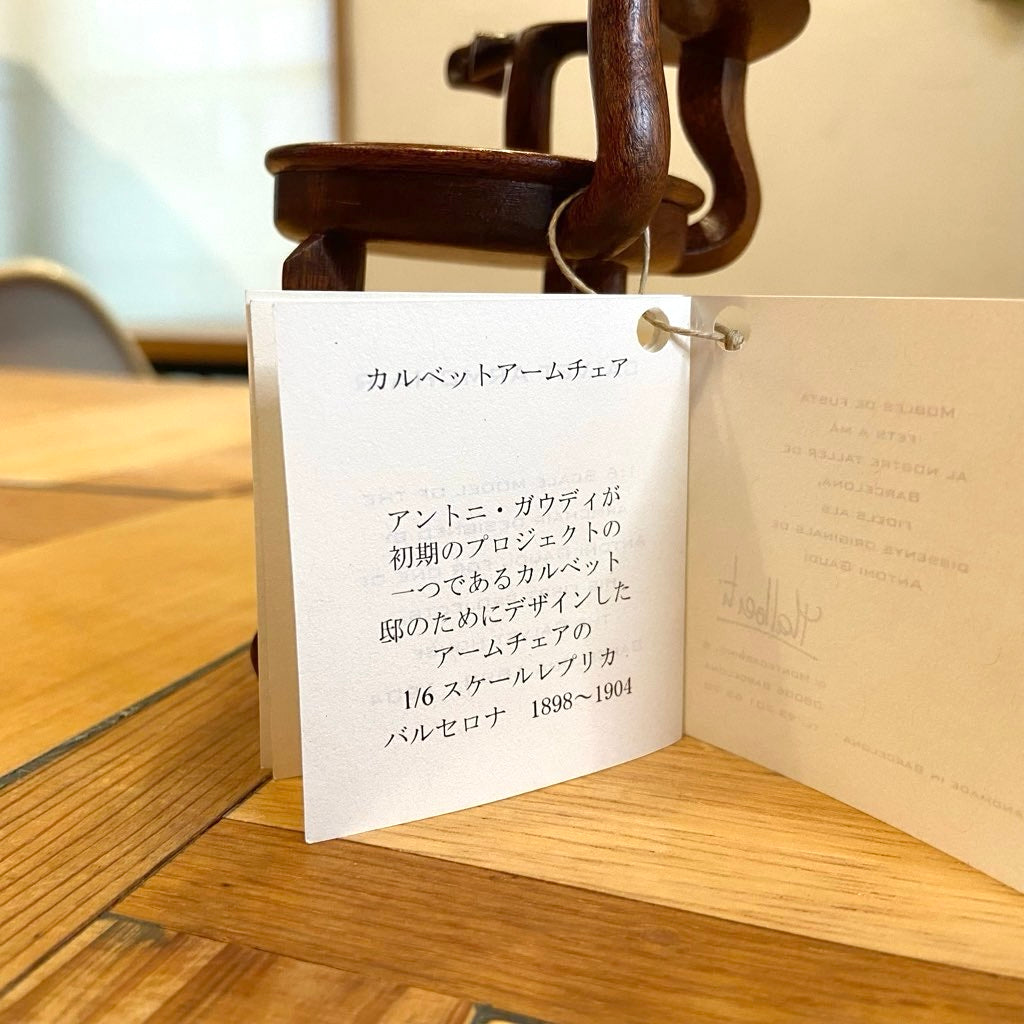 カルベットアームチェア
アントニ・ガウディが
初期のプロジェクトの
一つであるカルベット
邸のためにデザインした
アームチェアの
1/6 スケールレプリカ
バルセロナ　1898～1904
MOBLES DE FUSTA
FETS A MÀ
AL NOSTRE TALLER DE
BARCELONA,
FIDELS ALS
DISSENYS ORIGINALS DE
ANTONI GAUDÍ